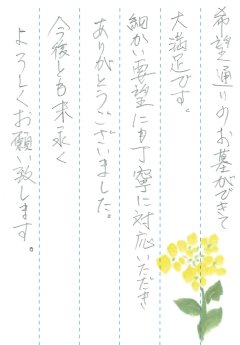 希望通りのお墓ができて
大満足です。
細かい要望にも丁寧に対応いただき
ありがとうございました。
今後とも末永く
よろしくお願い致します。